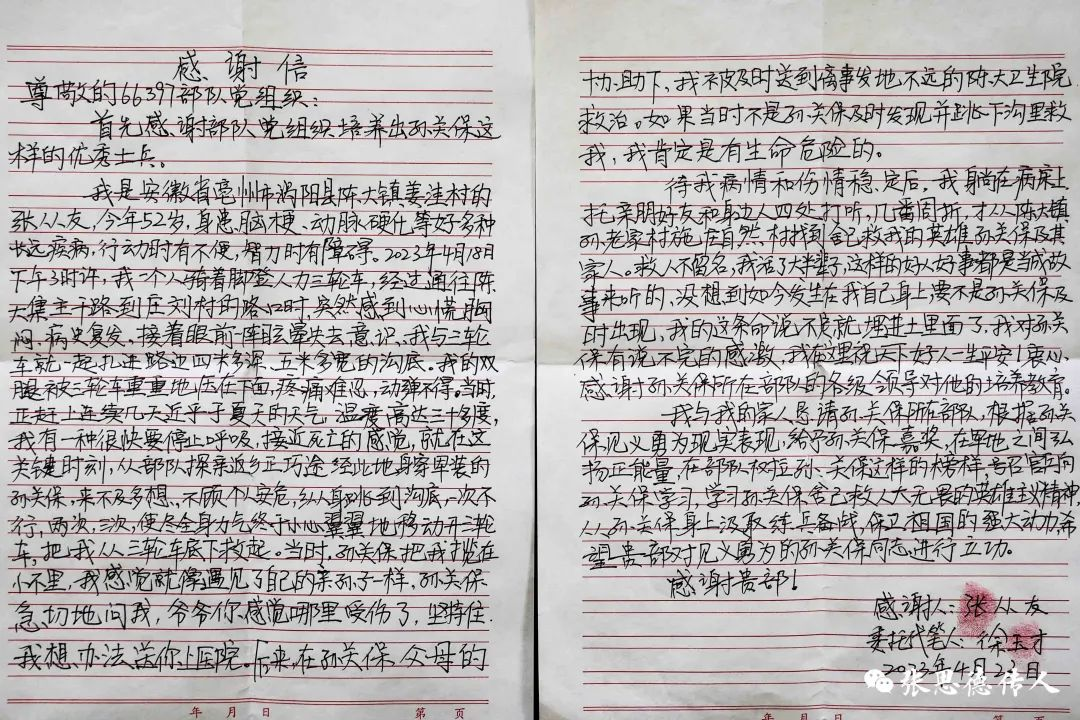 感谢信
尊敬的66397部队党组织：
首先感谢部队党组织培养出孙关保这
样的优秀士兵。
我是安徽省亳州市涡阳县陈大镇姜洼村的
张从友，今年52岁，身患脑梗、动脉硬化等好多种
长远疾病，行动时有不便，智力时有障碍。2023年4月18日
下午3时许，我一个人骑着脚登人力三轮车，经过通往陈
大集主干路到庄刘村的路口时，突然感到心慌胸
闷，病史复发。接着眼前一阵眩晕失去意识，我与三轮
车就一起扎进路边四米多深、五米多宽的沟底。我的双
腿被三轮车重重地压在下面，疼痛难忍，动弹不得。当时，
正赶上连续几天近乎于夏天的天气，温度高达三十多度，
我有一种很快要停止呼吸，接近死亡的感觉，就在这
关键时刻，从部队探亲返乡正巧途经此地身穿军装的
孙关保，来不及多想，不顾个人安危，纵身跳到沟底，一次不
行，两次、三次，使尽全身力气终于小心翼翼地移动开三轮
车，把我从三轮车底下救起。当时，孙关保把我揽在
怀里，我感觉就像遇见了自己的亲孙子一样，孙关保
急切地问我，爷爷你感觉哪里受伤了，坚持住，
我想办法送你上医院。后来，在孙关保父母的
协助下，我被及时送到离事发地不远的陈大卫生院
救治。如果当时不是孙关保及时发现并跳下沟里救
我，我肯定是有生命危险的。
待我病情和伤情稳定后，我躺在病床上
托亲朋好友和身边人四处打听，几番周折，才从陈大镇
孙老家村施庄自然村找到舍己救我的英雄孙关保及其
家人。救人不留名，我活了大半辈子，这样的好人好事都是当成故
事来听的，没想到如今发生在我自己身上，要不是孙关保及
时出现，我的这条命说不定就埋进土里面了，我对孙关
保有说不完的感激，我在这里祝天下好人一生平安！衷心
感谢孙关保所在部队的各级领导对他的培养教育。
我与我的家人恳请孙关保所在部队，根据孙关
保见义勇为现实表现，给予孙关保嘉奖，在军地之间弘
扬正能量，在部队树立孙关保这样的榜样，号召官兵向
孙关保学习，学习孙关保舍己救人大无畏的英雄主义精神
从孙关保身上汲取练兵备战，保卫祖国的强大动力，希
望贵部对见义勇为的孙关保同志进行立功。
感谢贵部！
感谢人：张从友
委托代笔人：徐玉才
2023年4月22日
年 月 日 第 页
张思德传人